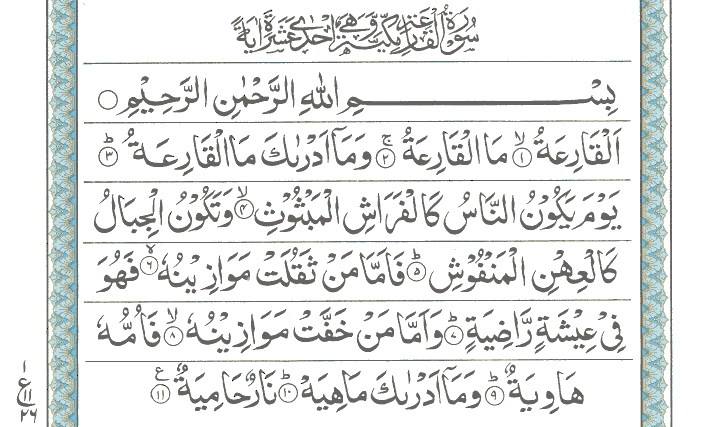 سُوْرَةُ الْقَارِعَةِ مَكِّيَّةٌ وَّهِيَ اِحْدٰى عَشْرَةَ اٰيَةً
بِسْمِ اللهِ الرَّحْمٰنِ الرَّحِيْمِ
اَلْقَارِعَةُ ۙ﴿۱﴾ مَا الْقَارِعَةُ ۚ﴿۲﴾ وَمَاۤ اَدْرٰىكَ مَا الْقَارِعَةُ ؕ﴿۳﴾
يَوْمَ يَكُوْنُ النَّاسُ كَالْفَرَاشِ الْمَبْثُوْثِ ۙ﴿۴﴾ وَتَكُوْنُ الْجِبَالُ
كَالْعِهْنِ الْمَنْفُوْشِ ؕ﴿۵﴾ فَاَمَّا مَنْ ثَقُلَتْ مَوَازِيْنُهٗ ۙ﴿۶﴾ فَهُوَ
فِيْ عِيْشَةٍ رَّاضِيَةٍ ؕ﴿۷﴾ وَاَمَّا مَنْ خَفَّتْ مَوَازِيْنُهٗ ۙ﴿۸﴾ فَاُمُّهٗ
هَاوِيَةٌ ؕ﴿۹﴾ وَمَاۤ اَدْرٰىكَ مَاهِيَهْ ؕ﴿۱۰﴾ نَارٌ حَامِيَةٌ ﴿۱۱﴾ ع
۱
ع
۱۱
۲۶